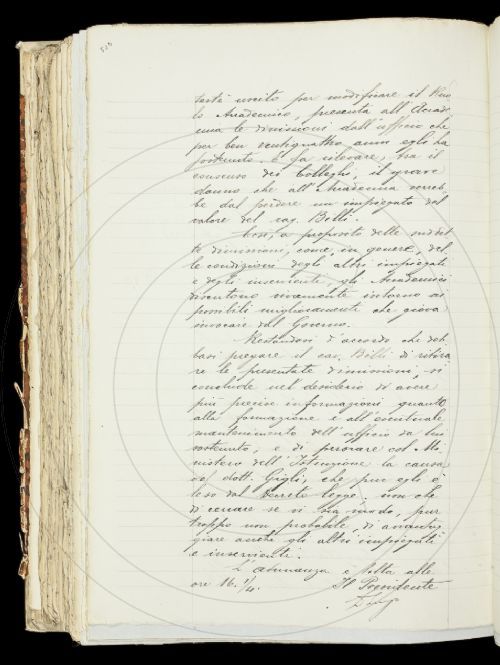 testè uscito per modificare il Ruo
lo Accademico, presenta all'Accade
mia le dimissioni dall'ufficio che
per ben ventiquattro anni egli ha
sostenuto. E fa rilevare, tra il
consenso dei Colleghi, il grave
danno che all'Accademia verreb,
be dal perdere un impiegato del
valore del cav. Bölli.
Così, a proposito delle suddet
te dimissioni, come, in genere, del
le condizioni degli altri impiegati
e degli inservienti, gli Accademici
discutono vivamente intorno ai
possibili miglioramenti che giova
invocare dal Governo.
Restandosi d'accordo che deb
basi pregare il cav. Bölli di ritira
re le presentate dimissioni, si
conchiude nel desiderio di avere
più precise informazioni quanto
alla formazione e all'eventuale
mantenimento dell'ufficio da lui
sostenuto, e di perorare col Mi,
nistero dell'Istruzione la causa
del dott. Gigli, che pur egli è
leso dal decreto legge; non che
di cercare se vi sia modo, pur
troppo non probabile, di avvantag
giare anche gli altri impiegati
e inservienti.
L'adunanza è sciolta alle
ore 16. 1/4.
Il Presidente